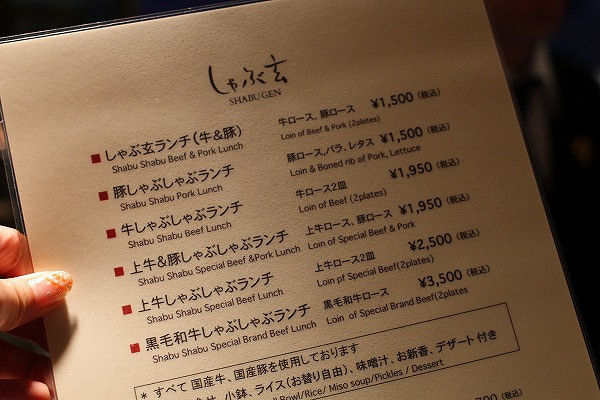 しゃぶ玄
SHABU GEN
しゃぶ玄ランチ(牛&豚) 牛ロース、豚ロース ¥1,500 (税込)
Shabu Shabu Beef & Pork Lunch Loin of Beef & Pork (2plates)
豚しゃぶしゃぶランチ 豚ロース,バラ、レタス ¥1,500 (税込)
Shabu Shabu Pork Lunch Loin & Boned rib of Pork, Lettuce
牛しゃぶしゃぶランチ 牛ロース2皿 ¥1,950 (税込)
Shabu Shabu Beef Lunch Loin of Beef (2plates)
上牛&豚しゃぶしゃぶランチ 上牛ロース、豚ロース ¥1,950 (税込)
Shabu Shabu Special Beef &Pork Lunch Loin of Special Beef & Pork
上牛しゃぶしゃぶランチ 上牛ロース2皿 ¥2,500 (税込)
Shabu Shabu Special Beef Lunch Loin pf Special Beef(2plates)
黒毛和牛しゃぶしゃぶランチ 黒毛和牛ロース ¥3,500 (税込)
Shabu Shabu Special Brand Beef Lunch Loin of Special Brand Beef(2plates
* すべて 国産牛、国産豚を使用しております
小鉢、ライス(お替り自由)、味噌汁、お新香、デザート 付き
Bowl/Rice/ Miso soup/Pickles / Dessert
(税込)